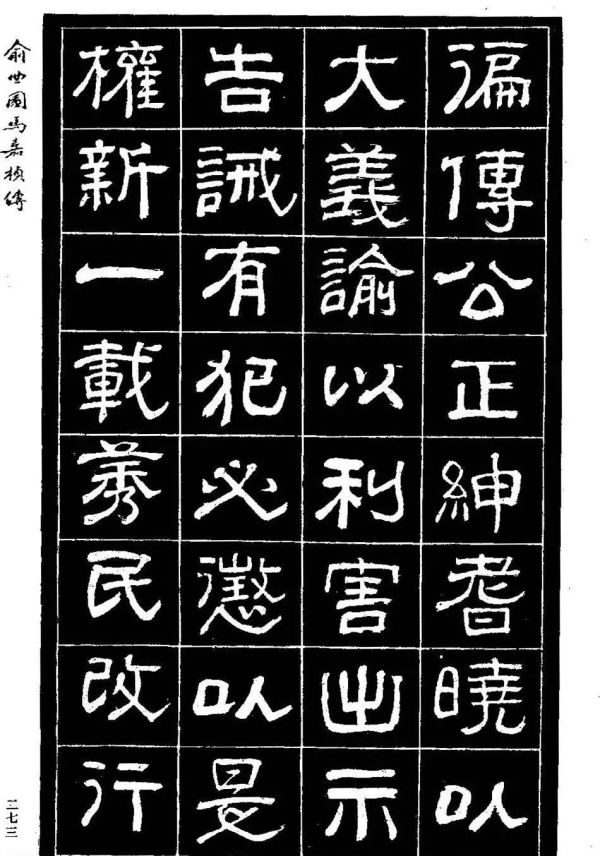 徧傳公正紳耆曉以
大義諭以利害出示
告誡有犯必懲以是
權新一載莠民改行
俞曲園馬嘉楨傳
二七三